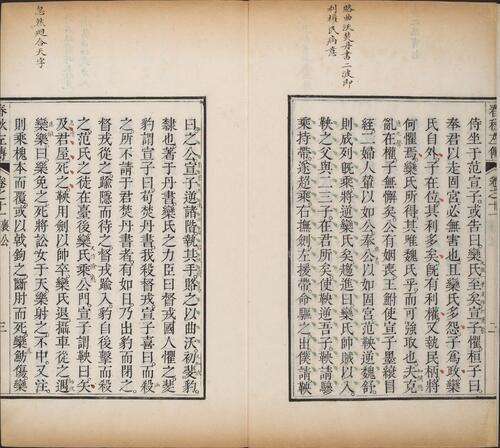 賂曲沃焚丹書二波即
利權民柄意
侍坐于范宣子或告曰欒氏至矣宣子懼桓子曰
奉君以走固宮必無害也且欒氏多怨子為政欒
氏自外子在位其利多矣既有利權又執民柄將
何懼焉欒氏所得其唯魏氏乎而可強取也夫克
亂在權子無懈矣公有姻喪王鮒使宣子墨縗冒
絰二婦人輦以如公奉公以如固宮范鞅逆魏舒
則成列既乘將逆欒氏矣趨進曰欒氏帥賊以入
鞅之父與二三子在君所矣使鞅逆吾子鞅請驂
乘持帶遂超乘右撫劍左援帶命驅之出僕請鞅
合天字
曰之公宣子逆諸階執其手賂之以曲沃初斐豹
隸也著于丹書欒氏之力臣曰督戎國人懼之斐
豹謂宣子曰苟焚丹書我殺督戎宣子喜曰而殺
之所不請于君焚丹書者有如日乃出豹而閉之
督戎從之踰隱而待之督戎踰入豹自後擊而殺
之范氏之徒在臺後欒氏乘公門宣子謂鞅曰矢
及君屋死之鞅用劍以帥卒欒氏退攝車從之遇
欒樂曰樂免之死將訟女于天樂射之不中又注
則乘槐本而覆或以戟鉤之斷肘而死欒魴傷欒
春秋左傳 卷二十一 襄公 三